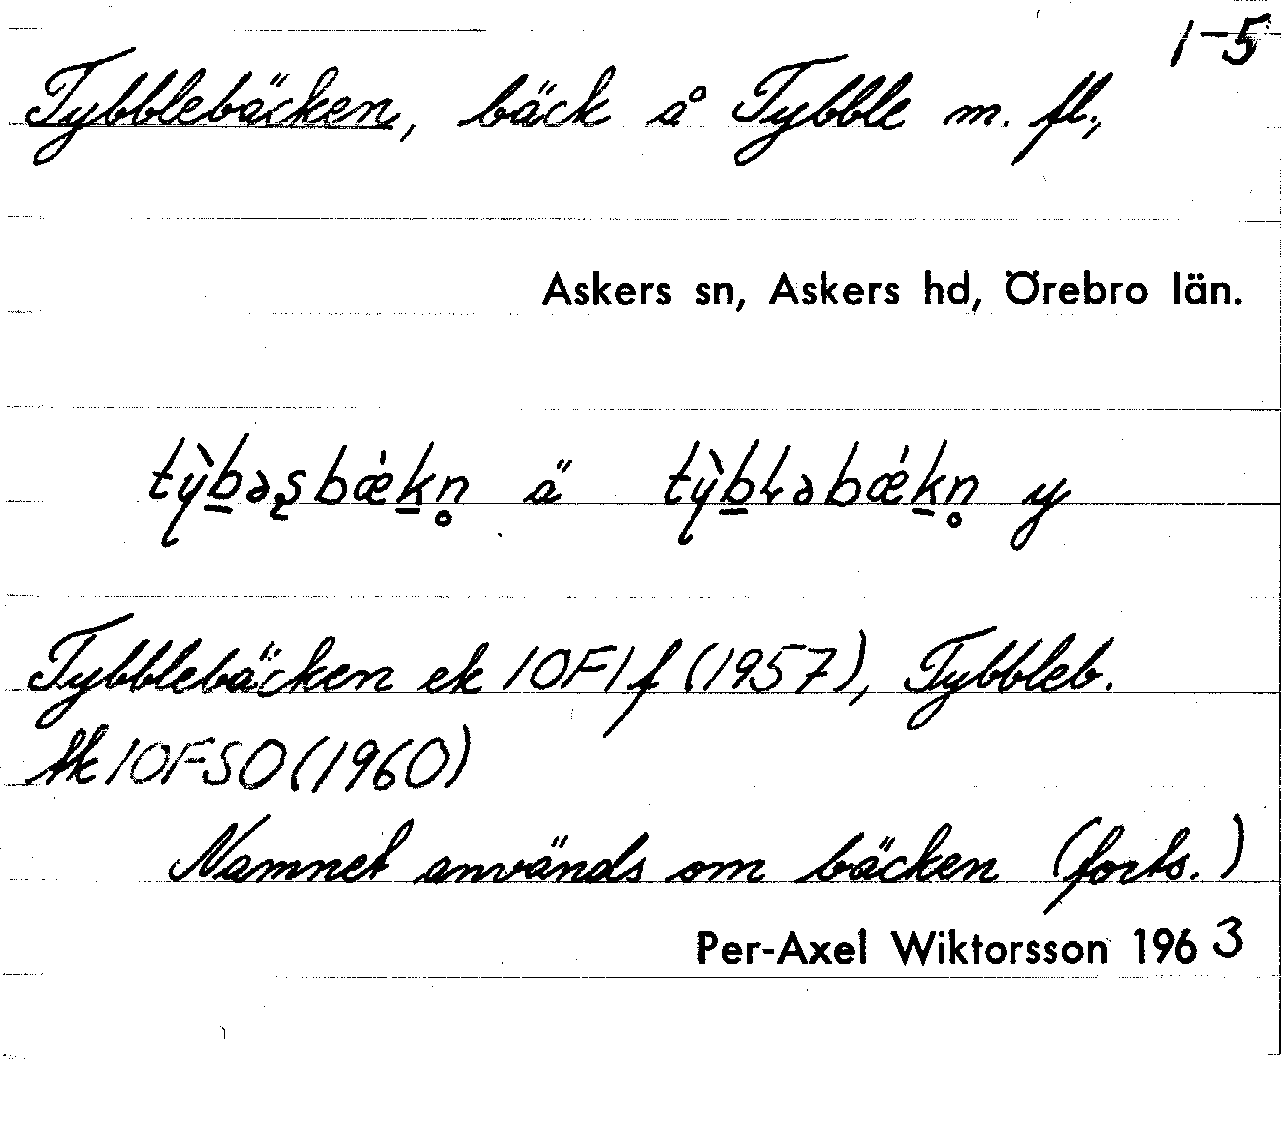 1-5
Tybblebäcken, bäck å Tybble m. fl.,
Askers sn, Askers hd, Örebro län.
tỳb̲əʂbǽk̲n̥ ä tỳb̲ɫəbǽk̲n̥ y
Tybblebäcken ek 10F1f (1957), Tybbleb.
tk 10FSO (1960)
Namnet används om bäcken (forts.)
Per-Axel Wiktorsson 1963